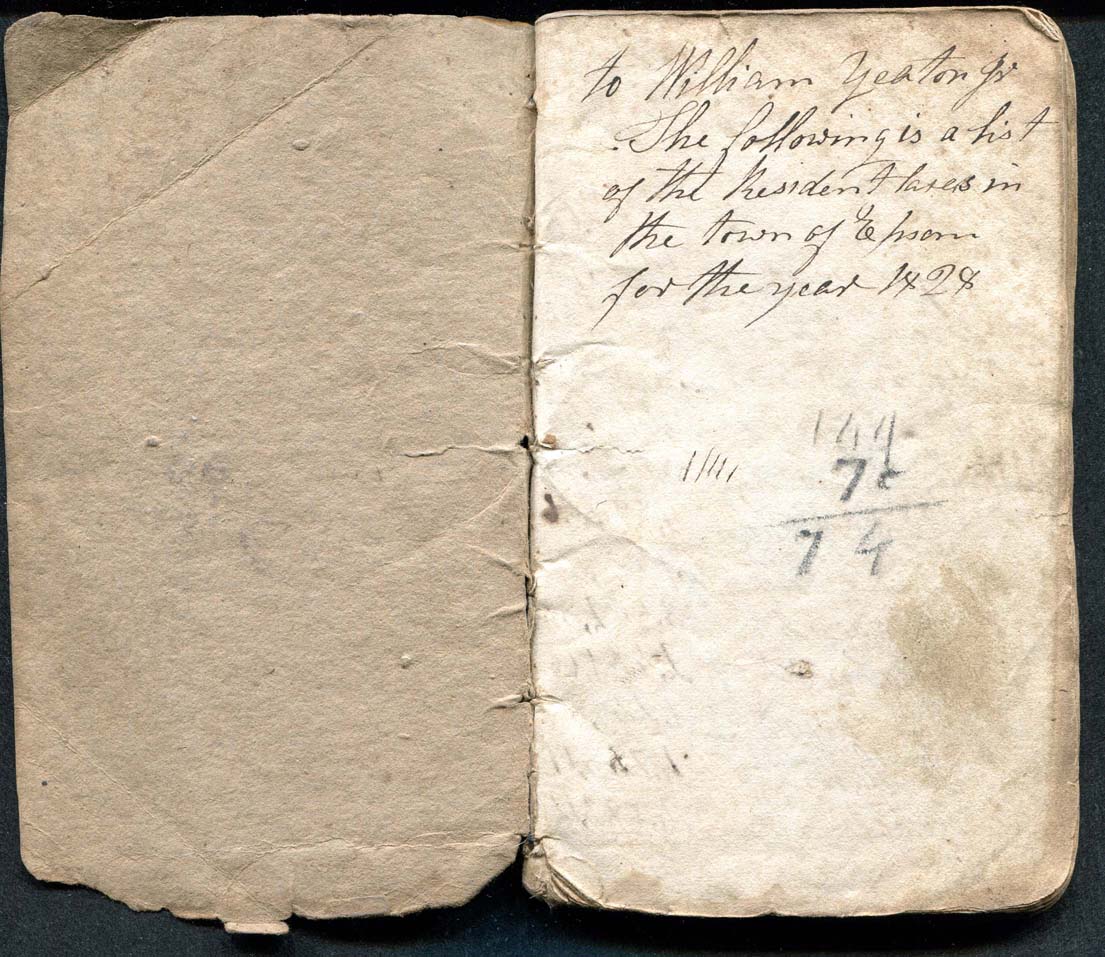 to William Yeaton Jr
The following is a list
of the Resident taxes in
the town of Epsom
for the year 1828
144
7
74